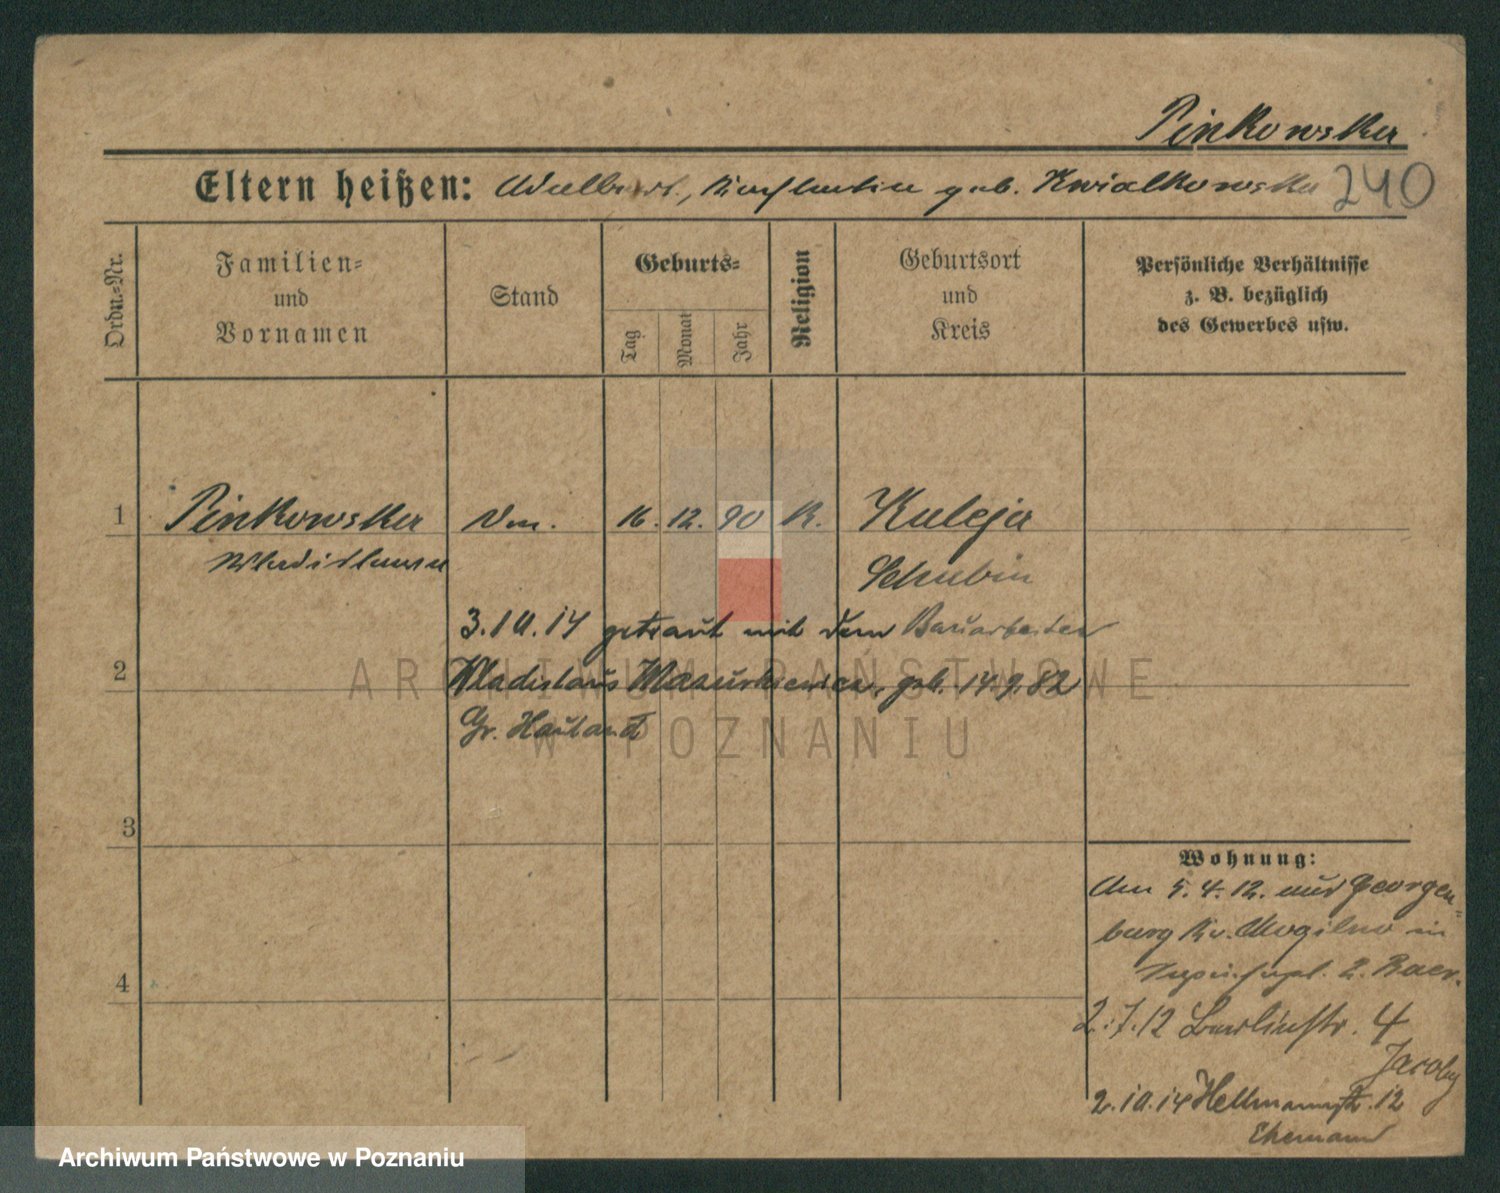 Pinkowska
Eltern heißen: Adalbert, geb. Kwiatkowska 240
Ordn.-Nr.
Familien-
und
Vornamen
Stand
Geburts-
Tag
Monat
Jahr
Religion
Geburtsort
und
Kreis
Persönliche Verhältnisse
z. B. bezüglich
des Gewerbes usw.
1 Pinkowska 16. 12. 90 K. Kuleja
Wladislawa Schubin
3.10.14 getraut mit dem Bauarbeiter
2 Wladislaus Mazurkiewicz, geb. 14.9.82
Gr. Hauland
3
Wohnung:
Am 5.4.12. aus Georgen-
burg Kr. Mogilno in
2. Baer.
4
2.7.12 Berlinstr. 4
Jacoby
2.10.14 Hellmannstr. 12
Ehemann
ARCHIWUM PAŃSTWOWE
W POZNANIU
Archiwum Państwowe w Poznaniu